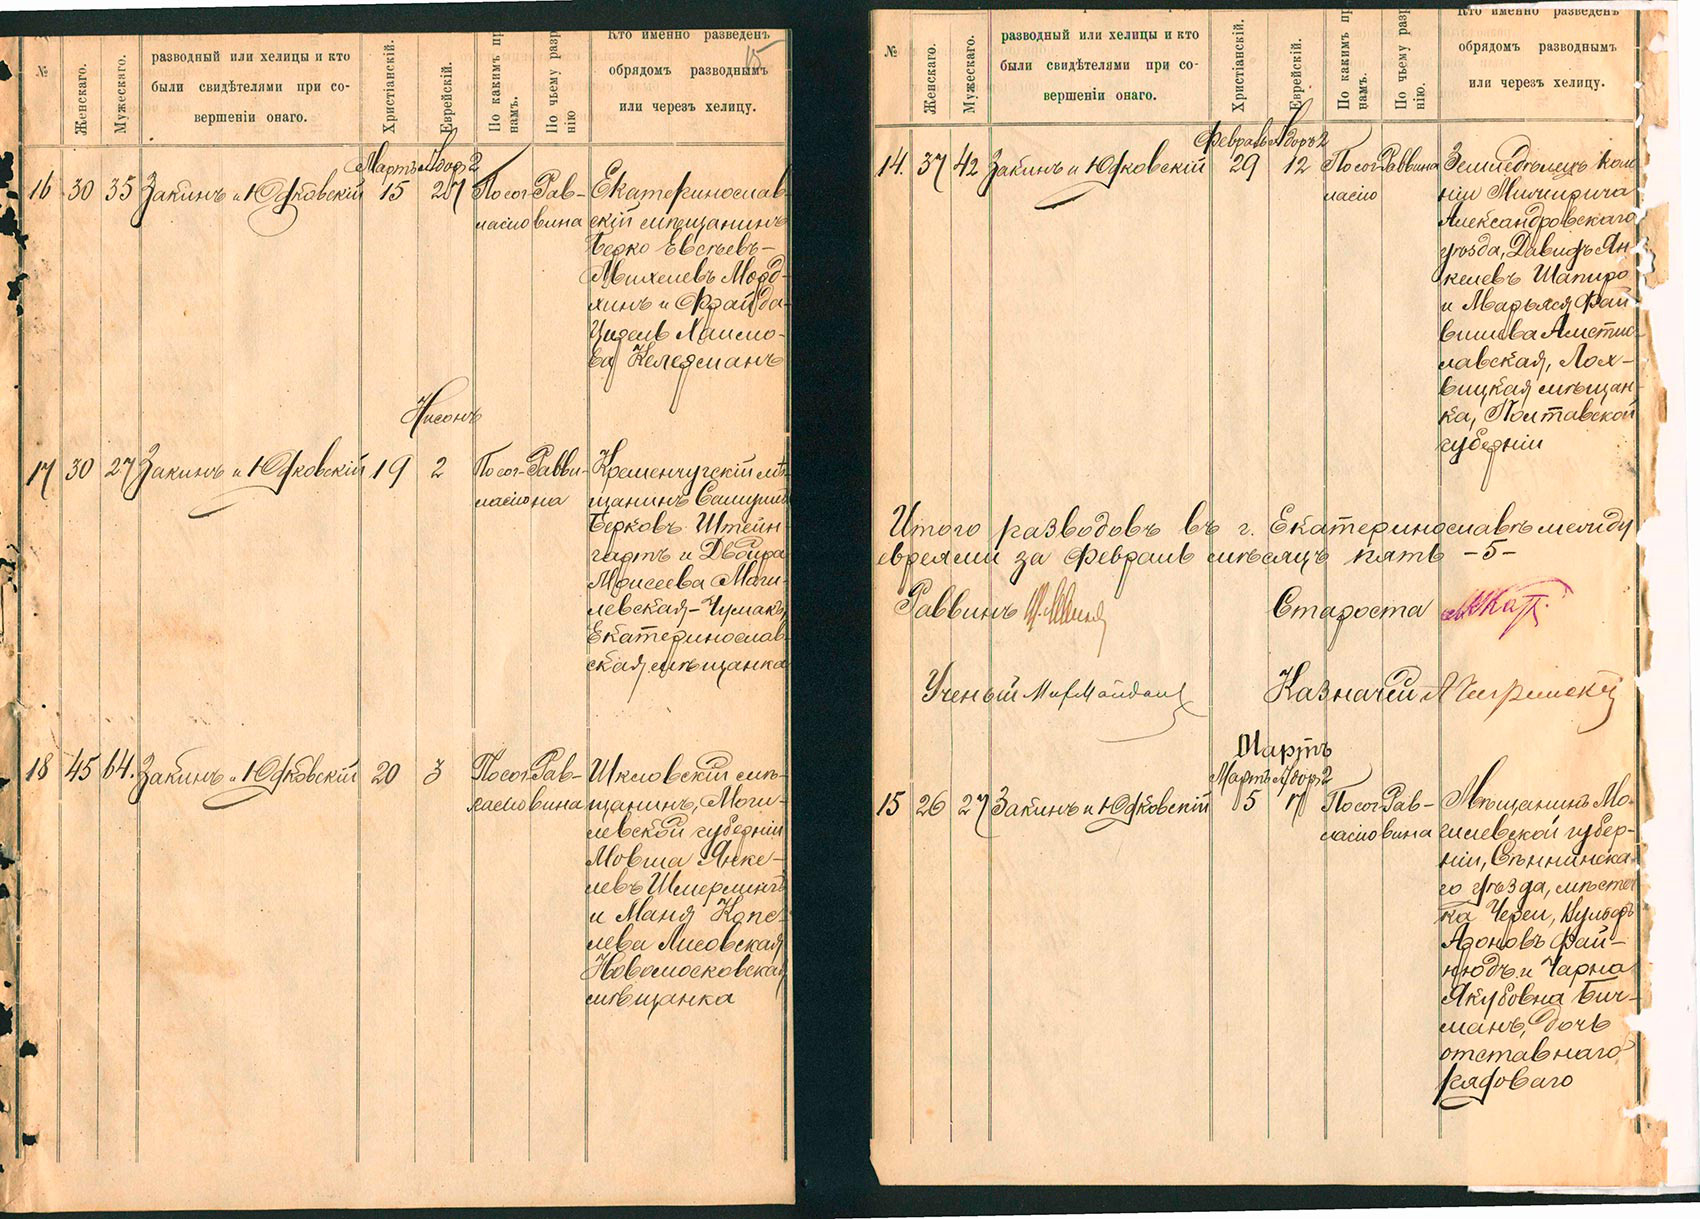 15
№
Женскаго.
Мужескаго.
разводный или хелицы и кто
были свидѣтелями при со-
вершеніи онаго.
Христіанскій.
Еврейскій.
По какимъ пр
намъ.
По чьему разр
нію
Кто именно разведенъ
обрядомъ разводнымъ
или черезъ хелицу.
Мартъ Адоръ 2
16 30 35 Закинъ и Юдковскій 15 27 По сог- Рав- Екатеринослав-
ласію вина скій мѣщанинъ
Берко Евсѣевъ-
Михелевъ Морд-
хинъ и Фрайда-
Цизель Хаимо-
ва Келерманъ
Нисонъ
17 30 27 Закинъ и Юдковскій 19 2 По сог- Равви- Кременчугскій мѣ-
ласію на щанинъ Самуилъ
Берковъ Штейн-
гартъ и Двойра
Моисеева Моги-
левская-Чумакъ,
Екатеринослав-
ская мѣщанка
18 45 64. Закинъ и Юдковскій 20 3 По сог- Рав- Шкловскій мѣ-
ласію вина щанинъ, Моги-
левской губерніи
Мовша Янке-
левъ Шмерлингъ
и Маня Копе-
лева Лисовская
Новомосковская
мѣщанка
№
Женскаго.
Мужескаго.
разводный или хелицы и кто
были свидѣтелями при со-
вершеніи онаго.
Христіанскій.
Еврейскій.
По какимъ пр
намъ.
По чьему разр
нію.
Кто именно разведенъ
обрядомъ разводнымъ
или черезъ хелицу.
Февраль Адоръ 2
14. 37 42 Закинъ и Юдковскій 29 12 По сог- Раввина Земледѣлецъ коло
ласію ніи Мичирича
Александровскаго
уѣзда, Давидъ Ян
келевъ Шапиро
и Марьяся Фай
вишева Амстис-
лавская, Лох-
вицкая мѣщан-
ка, Полтавской
губерніи
Итого разводовъ въ г. Екатеринославѣ между
евреями за Февраль мѣсяцъ пять -5-
Раввинъ Староста
Ученый Казначей
Мартъ
Мартъ Адоръ 2
15 26 27 Закинъ и Юдковскій 5 17 По сог- Рав- Мѣщанинъ Мо-
ласію вина гилевской губер-
ніи, Сѣннинска-
го уѣзда, мѣстеч
ка Череи,
Ароновъ Фай-
нюдъ и Чарна
Якубовна Бих-
манъ, дочь
отставнаго
рядоваго